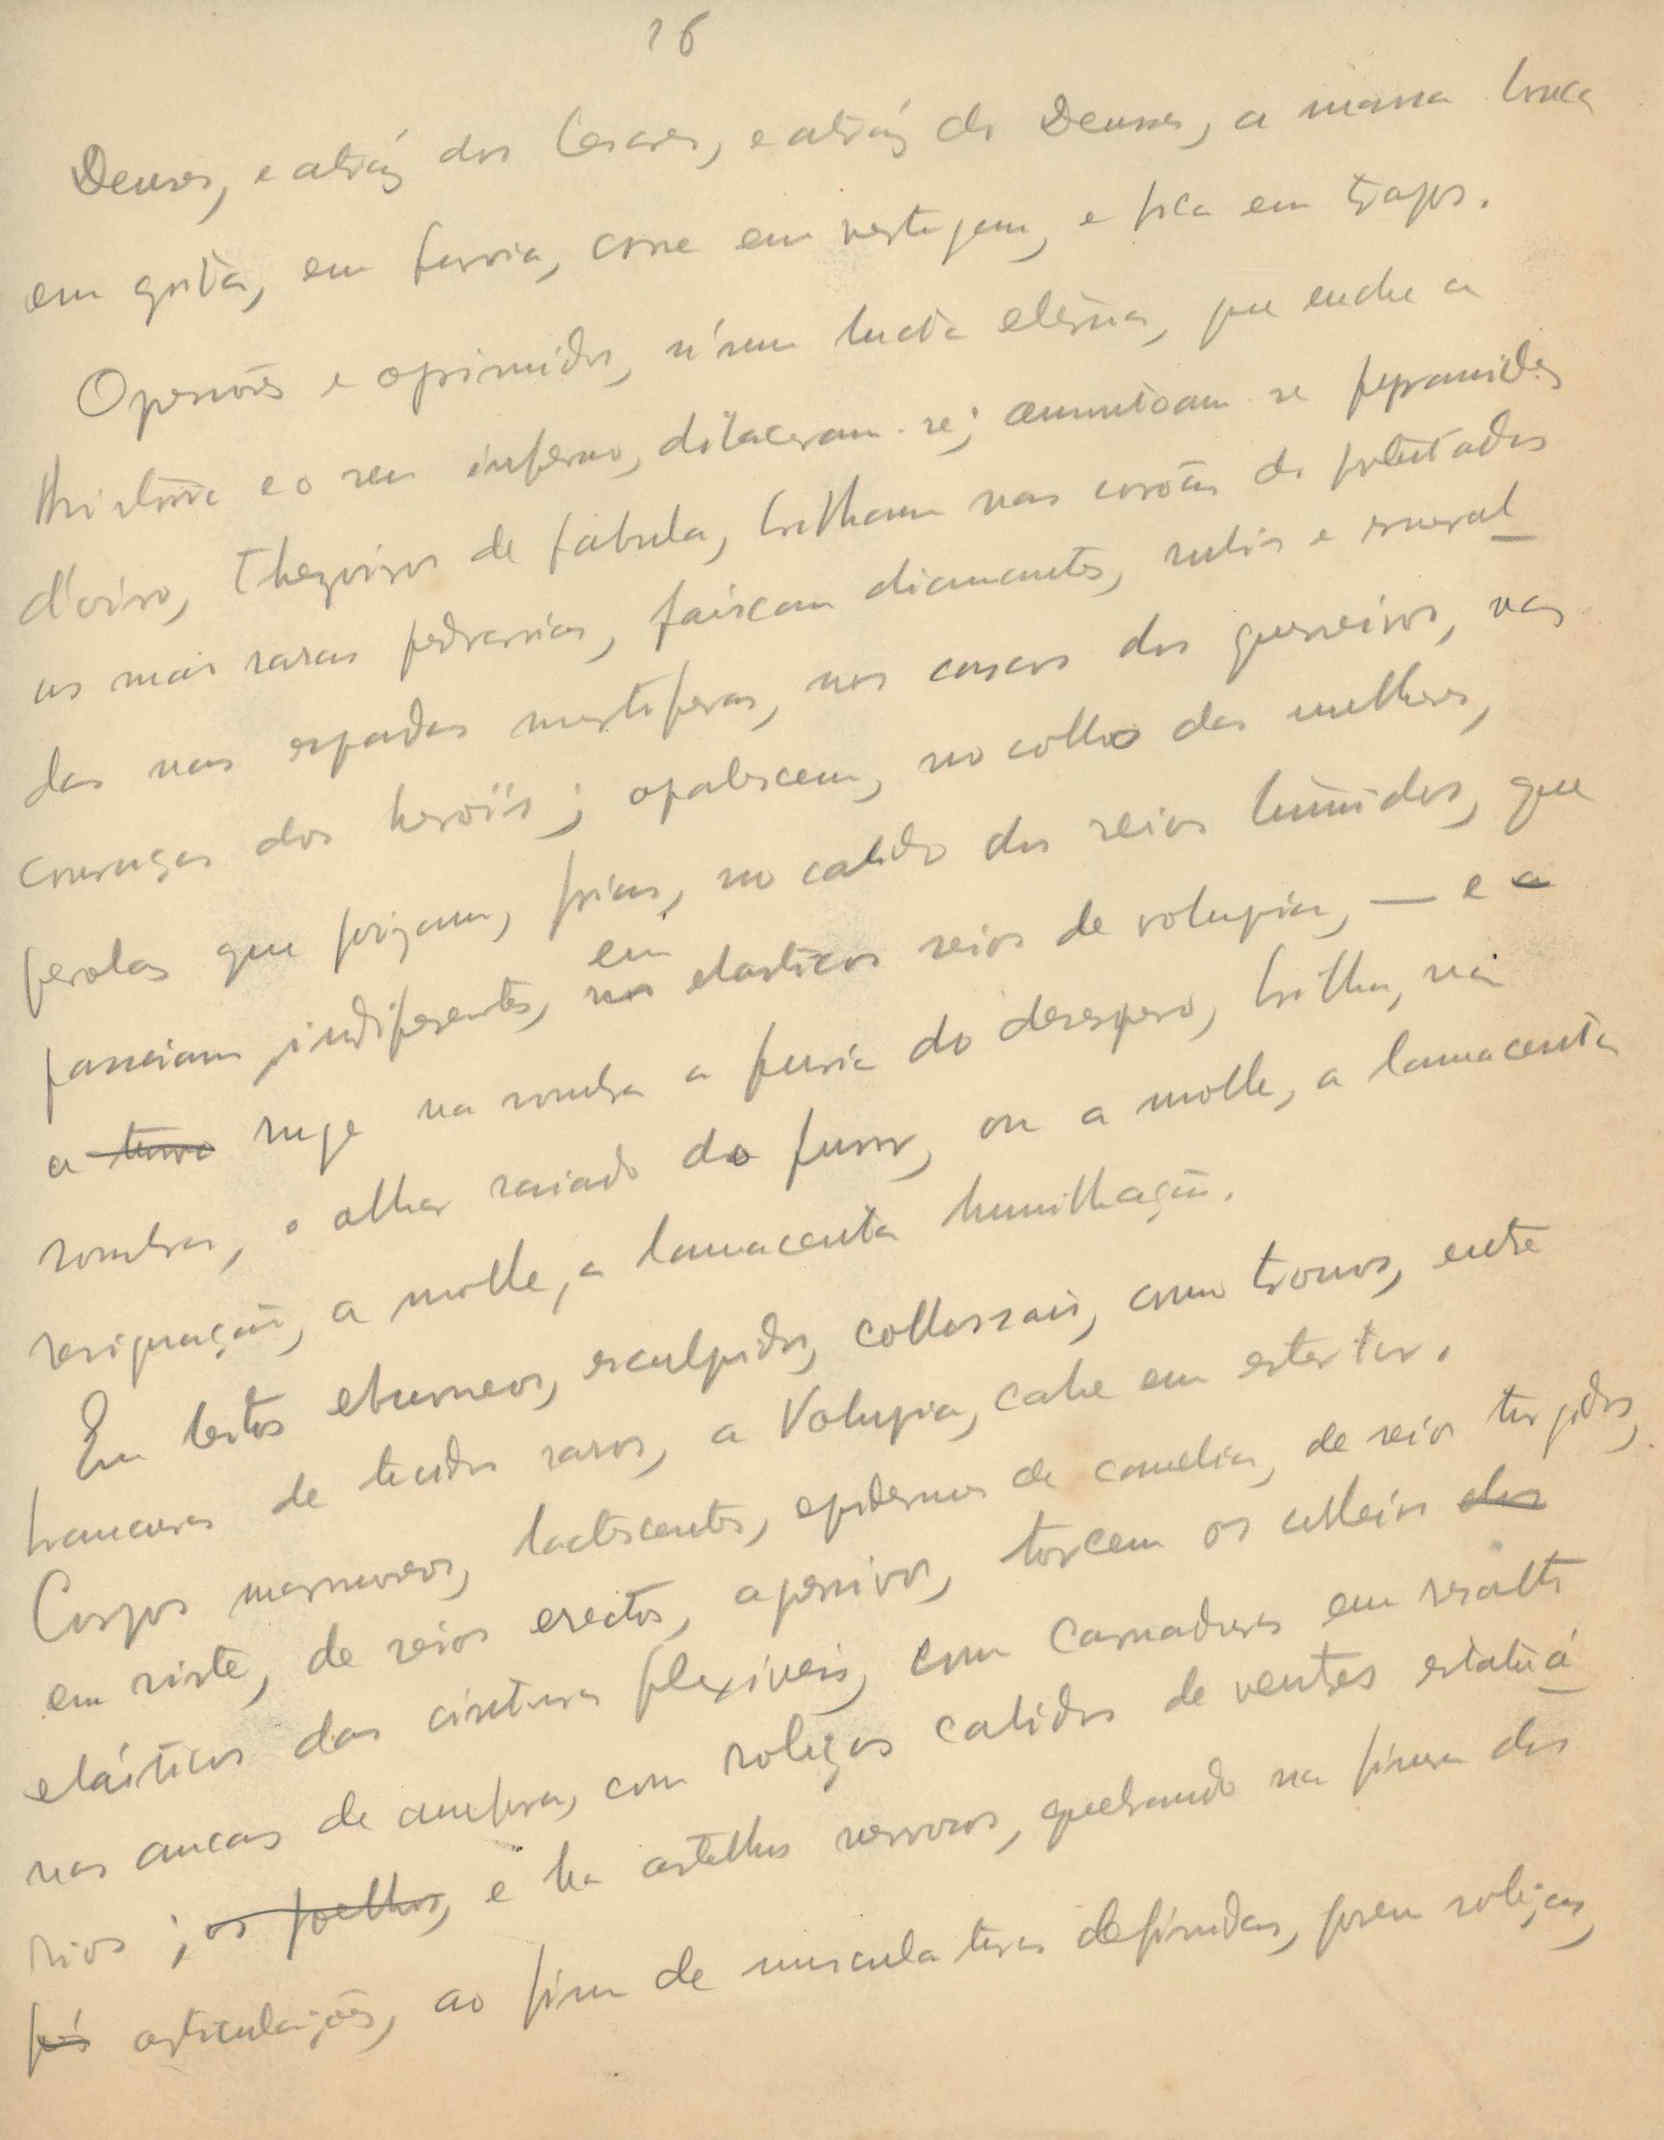 16
Deuses, e atráz dos Cesares, e atráz de Deuses, a massa louca
em grita, em furria, corre em vertigem, e fica em trapos.
Opressôres e oprimidos, n'uma lucta eterna, que enche a
Historia e o seu inferno, dilaceram-se; amontoam-se pyramides
d'oiro, thezoiros de fabula, brilham nas corôas de potentados
as mais raras pedrarias, faiscam diamantes, rubis e esmeral
das nas espadas mortiferas, nos cascos dos guerreiros, nas
couraças dos heroïs; opalescem, no collo das mulheres,
perolas que poizam, frias, no calido dos seios tumidos, que
passeiam, indiferentes, nos em elasticos seios de volupia, — e a
a turva ruge na sombra a furia do desespero, brilha, na
sombra, o olhar raiado do furor, ou a molle, a lamacenta
resignação, a molle, a lamacenta humilhação.
Em leitos eburneos, esculpidos, collossais, como tronos, entre
brancuras de tecidos raros, a Volupia, cahe em estertor.
Corpos marmoreos, lactescentes, epidermes de camelia, de seios turgidos,
em riste, de seios erectos, agressivos, torcem os colleios dos
elásticos das cinturas flexiveis, com carnaduras em resalto
nas ancas de amfora, com roliços calidos de ventres estatuá
rios; os joelhos, e ha artelhos nervosos, quebrando na finura das
pés articulações, ao fim de musculaturas definidas, porem roliças,